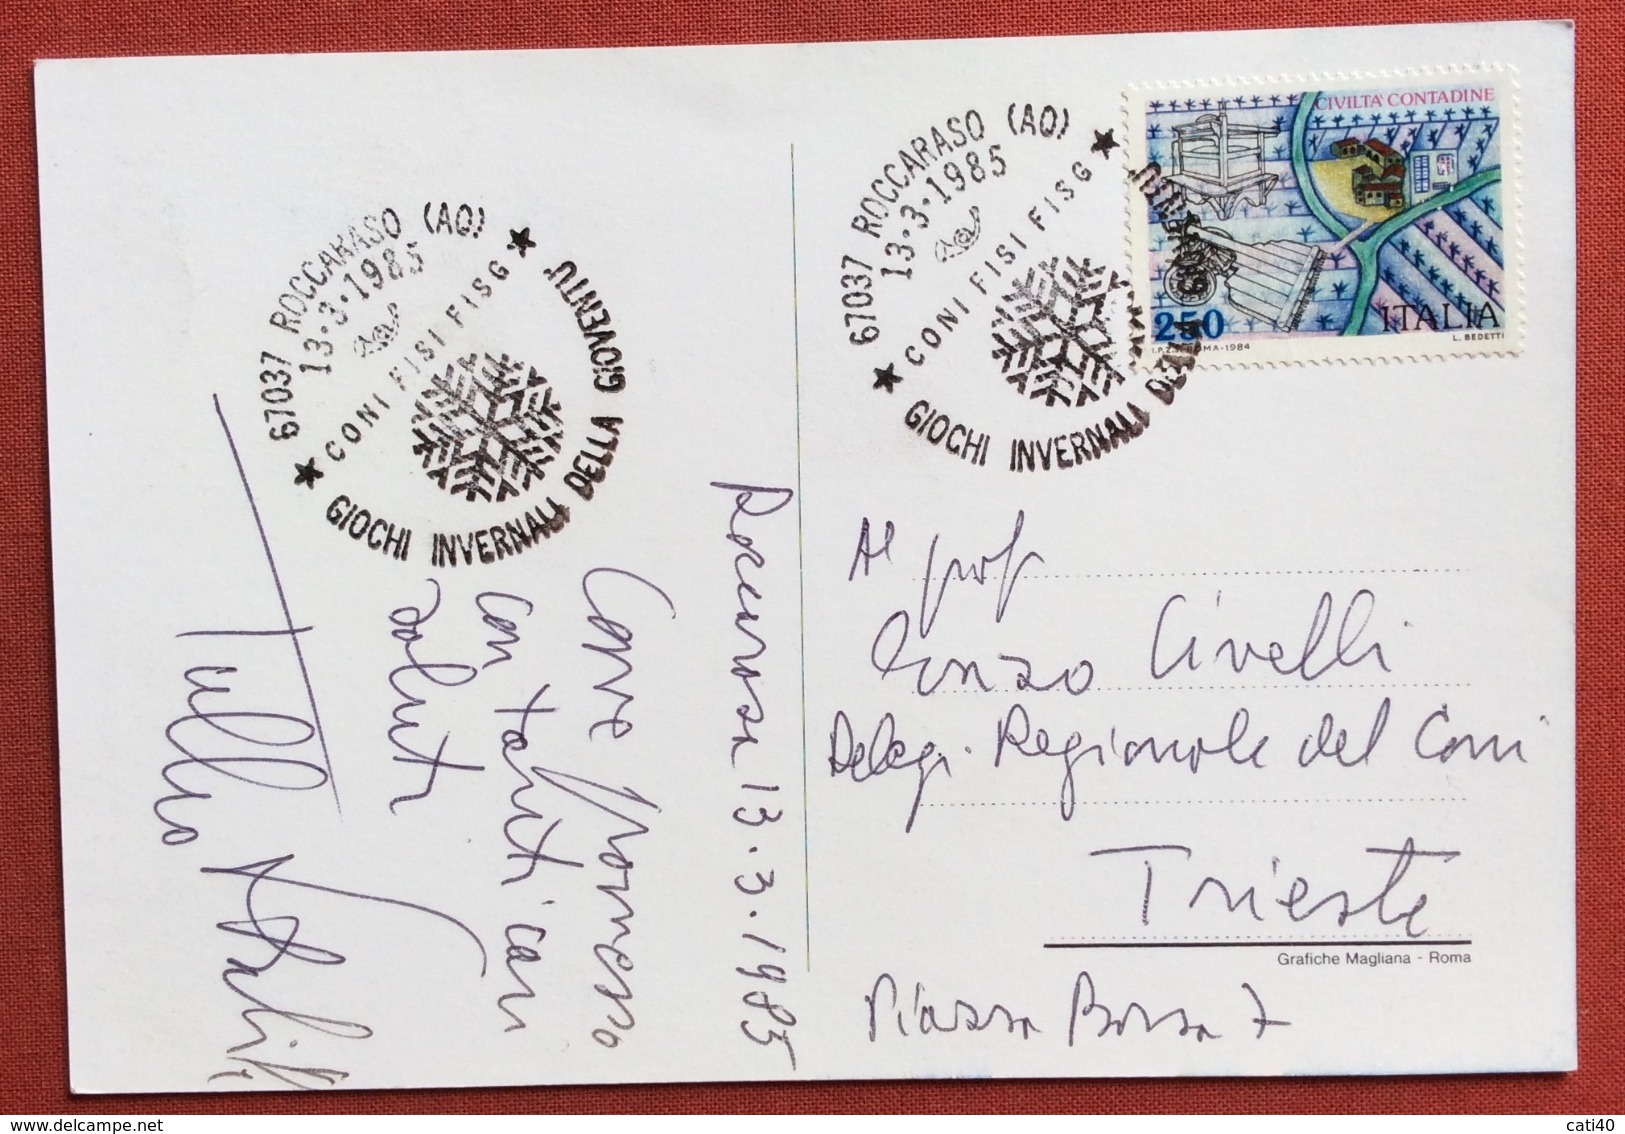 67037 ROCCARASO (AQ)
13·3·1985
CONI FISI FISG
GIOCHI INVERNALI DELLA GIOVENTU'
67037 ROCCARASO (AQ)
13·3·1985
CONI FISI FISG
GIOCHI INVERNALI DELLA GIOVENTU'
CIVILTA' CONTADINE
250
ITALIA
I.P.Z.S. ROMA-1984
L. BEDETTI
Roccaraso 13.3.1985
con tanti cari
saluti
Tullio
Al prof
Enzo Civelli
Deleg. Regionale del Coni
Trieste
Grafiche Magliana - Roma
Piazza Borsa 7
www.delcampe.net
cati40